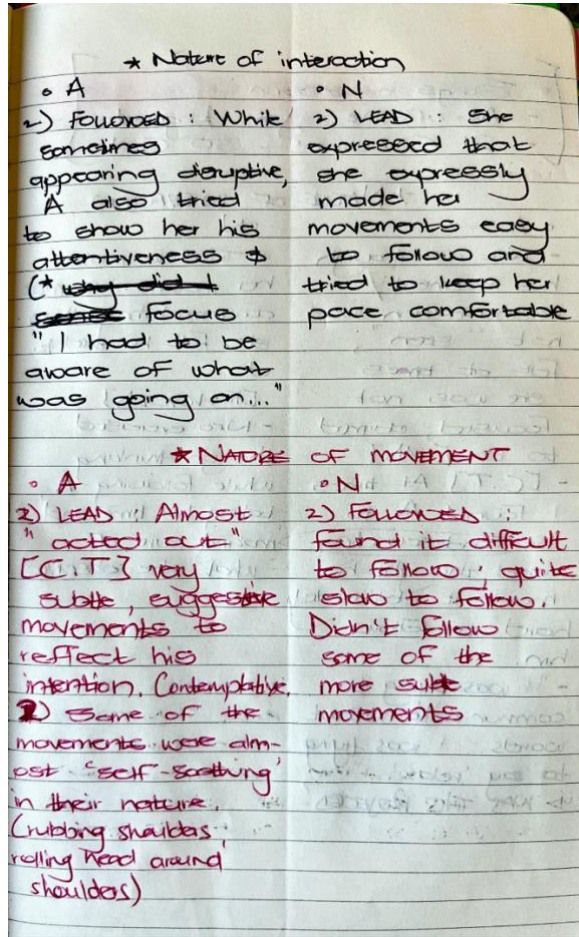 * Nature of interaction
• A
2) FOLLOWED : While
sometimes
appearing disruptive,
A also tried
to show her his
attentiveness &
(* why did I
focus
"I had to be
aware of what
was going on..."
• N
2) LEAD : She
expressed that
she expressly
made her
movements easy
to follow and
tried to keep her
pace comfortable
* NATURE OF MOVEMENT
• A
2) LEAD Almost
"acted out"
[C.T] very
subtle, suggestive
movements to
reflect his
intention. Contemplative.
2) Some of the
movements were alm-
ost 'self-soothing'
in their nature.
(rubbing shoulders
rolling head around
shoulders)
• N
2) FOLLOWED :
found it difficult
to follow ; quite
slow to follow.
Didn't follow
some of the
more subtle
movements